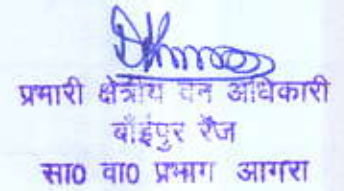 प्रभारी क्षेत्रीय वन अधिकारी
बाँईपुर रेंज
सा0 वा0 प्रभाग आगरा